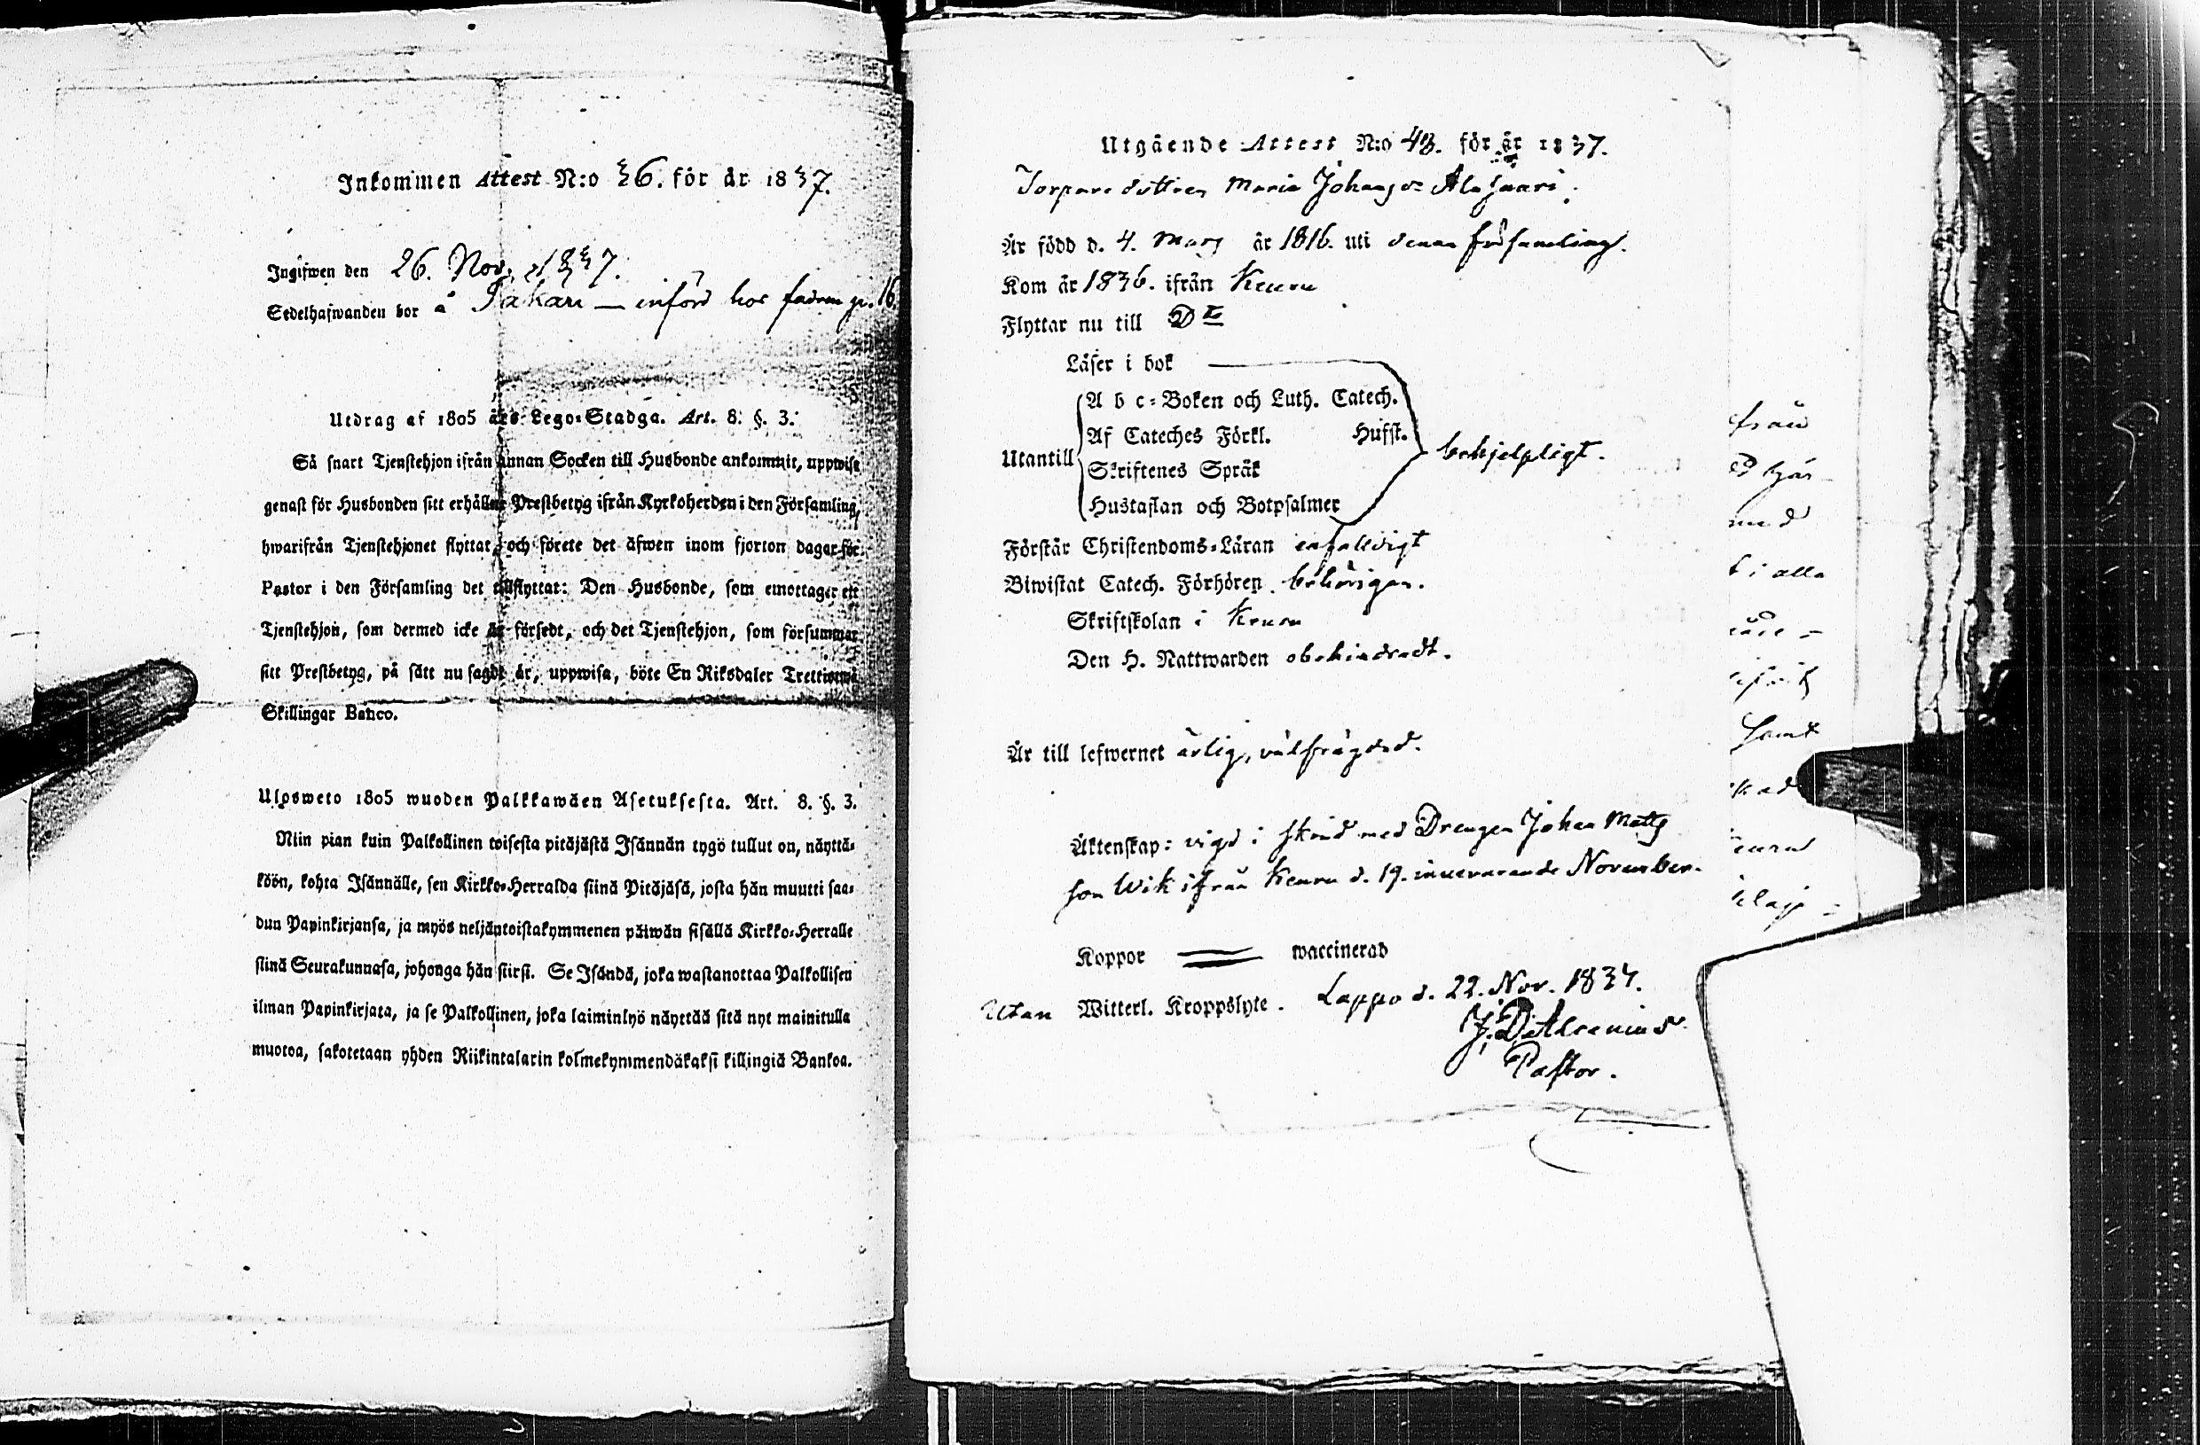 Inkommen Attest N:o 36. för år 1837.
Ingifwen den 26. Nov. 1837.
Sedelhafwanden bor å Sakari — införd hos fadren p. 16.
Utdrag af 1805 års Lego-Stadga. Art. 8. §. 3.
Så snart Tjenstehjon ifrån annan Socken till Husbonde ankommit, uppwise
genast för Husbonden sitt erhållne Prestbetyg ifrån Kyrkoherden i den Församling,
hwarifrån Tjenstehjonet flyttat, och förete det äfwen inom fjorton dagar för
Pastor i den Församling det tillflyttat: Den Husbonde, som emottager ett
Tjenstehjon, som dermed icke är försedt, och det Tjenstehjon, som försummar
sitt Prestbetyg, på sätt nu sagdt är, uppwisa, böte En Riksdaler Trettiotwå
Skillingar Banco.
Ulosweto 1805 wuoden Palkkawäen Asetuksesta. Art. 8. §. 3.
Niin pian kuin Palkollinen toisesta pitäjästä Isännän tygö tullut on, näyttä-
köön, kohta Isännälle, sen Kirkko-Herralda siinä Pitäjäsä, josta hän muutti saa-
dun Papinkirjansa, ja myös neljäntoistakymmenen päiwän sisällä Kirkko-Herralle
siinä Seurakunnasa, johonga hän siirsi. Se Isändä, joka wastanottaa Palkollisen
ilman Papinkirjata, ja se Palkollinen, joka laiminlyö näyttää sitä nyt mainitulla
muotoa, sakotetaan yhden Riikintalarin kolmekymmendäkaksi killingiä Bankoa.
Utgående Attest N:o 43. för år 1837.
Torpare dottren Maria Johansd:r Ala Saari.
Är född d. 4. Mars år 1816. uti denna församling.
Kom år 1836. ifrån Keuru
Flyttar nu till D:o
Läser i bok
A b c-Boken och Luth. Catech.
Af Cateches Förkl. Hufst.
Utantill
behjelpligt.
Skriftenes Språk
Hustaflan och Botpsalmer
Förstår Christendoms-Läran enfalldigt
Biwistat Catech. Förhören behörigen.
Skriftskolan i Keuru
Den H. Nattwarden obehindradt.
Är till lefwernet ärlig, välfrägdad.
Äktenskap: vigd i stånd med Drengen Johan Matts
son Wik ifrån Keuru d. 19. innevarande November.
Koppor waccinerad
Utan Witterl. Kroppslyte. Lappo d. 22. Nov. 1837.
J. D. Alcenius
Pastor.
från
med
i alla
samt